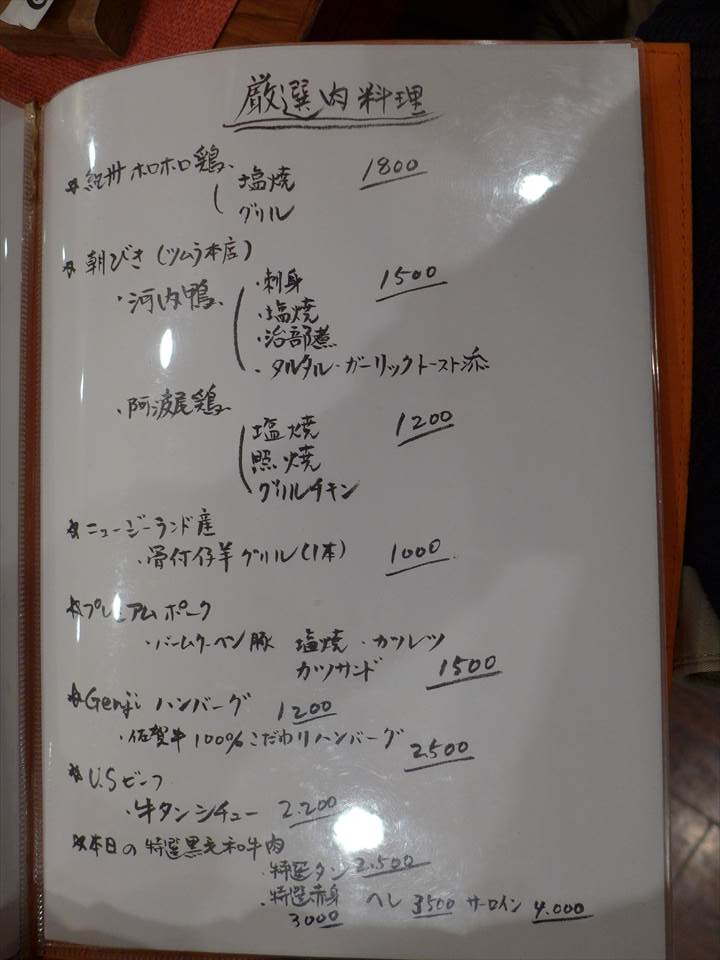 厳選肉料理
☆紀州ホロホロ鶏、塩焼 1800
グリル
☆朝びき(ツムラ本店)
・河内鴨、・刺身 1500
・塩焼
・治部煮
・タルタル・ガーリックトースト添
・阿波尾鶏、塩焼 1200
照焼
グリルチキン
☆ニュージーランド産
・骨付仔羊グリル(1本) 1000
☆プレミアムポーク
・バームクーヘン豚 塩焼・カツレツ
カツサンド 1500
☆Genji ハンバーグ 1200
・佐賀牛100%こだわりハンバーグ 2500
☆U.Sビーフ
・牛タンシチュー 2.200
☆本日の特選黒毛和牛肉
・特選タン 2.500
・特選赤身 ヘレ 3500 サーロイン 4.000
3000